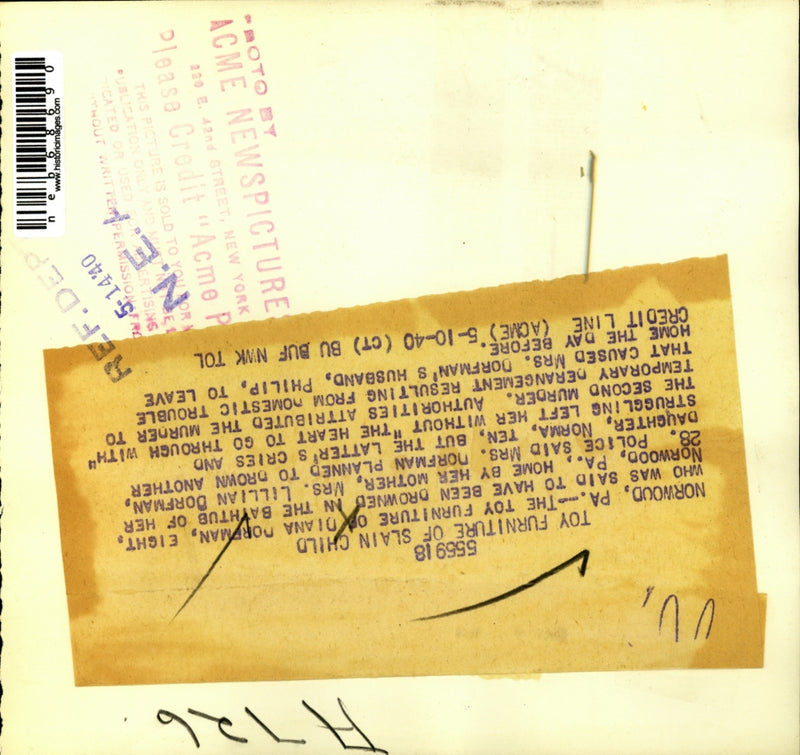 neb68690
www.historicimages.com
PHOTO BY
ACME NEWSPICTURES
220 E. 42nd STREET, NEW YORK
Please Credit "Acme P
THIS PICTURE IS SOLD TO YOU FOR
PUBLICATION ONLY AND MUST
WITHOUT WRITTEN PERMISSION
REF. DEP
5-14'40
N.E.A
555918
TOY FURNITURE OF SLAIN CHILD
NORWOOD, PA.--THE TOY FURNITURE OF DIANA DORFMAN, EIGHT,
WHO WAS SAID TO HAVE BEEN DROWNED IN THE BATHTUB OF HER
NORWOOD, PA., HOME BY HER MOTHER, MRS. LILLIAN DORFMAN,
28. POLICE SAID MRS. DORFMAN PLANNED TO DROWN ANOTHER
DAUGHTER, NORMA, TEN, BUT THE LATTER'S CRIES AND
STRUGGLING LEFT HER WITHOUT "THE HEART TO GO THROUGH WITH"
THE SECOND MURDER. AUTHORITIES ATTRIBUTED THE MURDER TO
TEMPORARY DERANGEMENT RESULTING FROM DOMESTIC TROUBLE
THAT CAUSED MRS. DORFMAN'S HUSBAND, PHILIP, TO LEAVE
HOME THE DAY BEFORE.
CREDIT LINE (ACME) 5-10-40 (CT) BU BUF NWK TOL